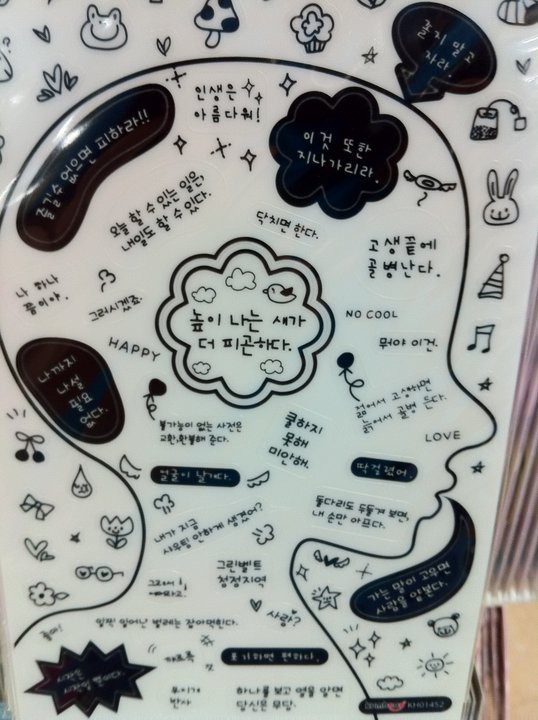 졸지 말고
자라.
인생은
아름다워!
즐길수 없으면 피하라!!
이것 또한
지나가리라.
오늘 할 수 있는 일은,
내일도 할 수 있다.
닥치면 한다.
고생끝에
골병난다.
나 하나
쯤이야.
그러시겠죠.
높이 나는 새가
더 피곤하다.
NO COOL
뭐야 이건.
HAPPY
나까지
나설
필요
없다.
젊어서 고생하면
늙어서 골병 든다.
불가능이 없는 사전은
교환,환불해 준다.
쿨하지
못해
미안해.
LOVE
얼굴이 날개다.
딱걸렸어.
돌다리도 두들겨 보면,
내 손만 아프다.
내가 지금
사우팅 안하게 생겼어?
그린벨트
청정지역
가는 말이 고우면
사람을 얕본다.
그래서
사랑?
일찍 일어난 벌레는 잡아먹힌다.
시작은
시작일 뿐이다.
포기하면 편하다.
무지개
반사
하나를 보고 열을 알면
당신은 무당.
KH01452